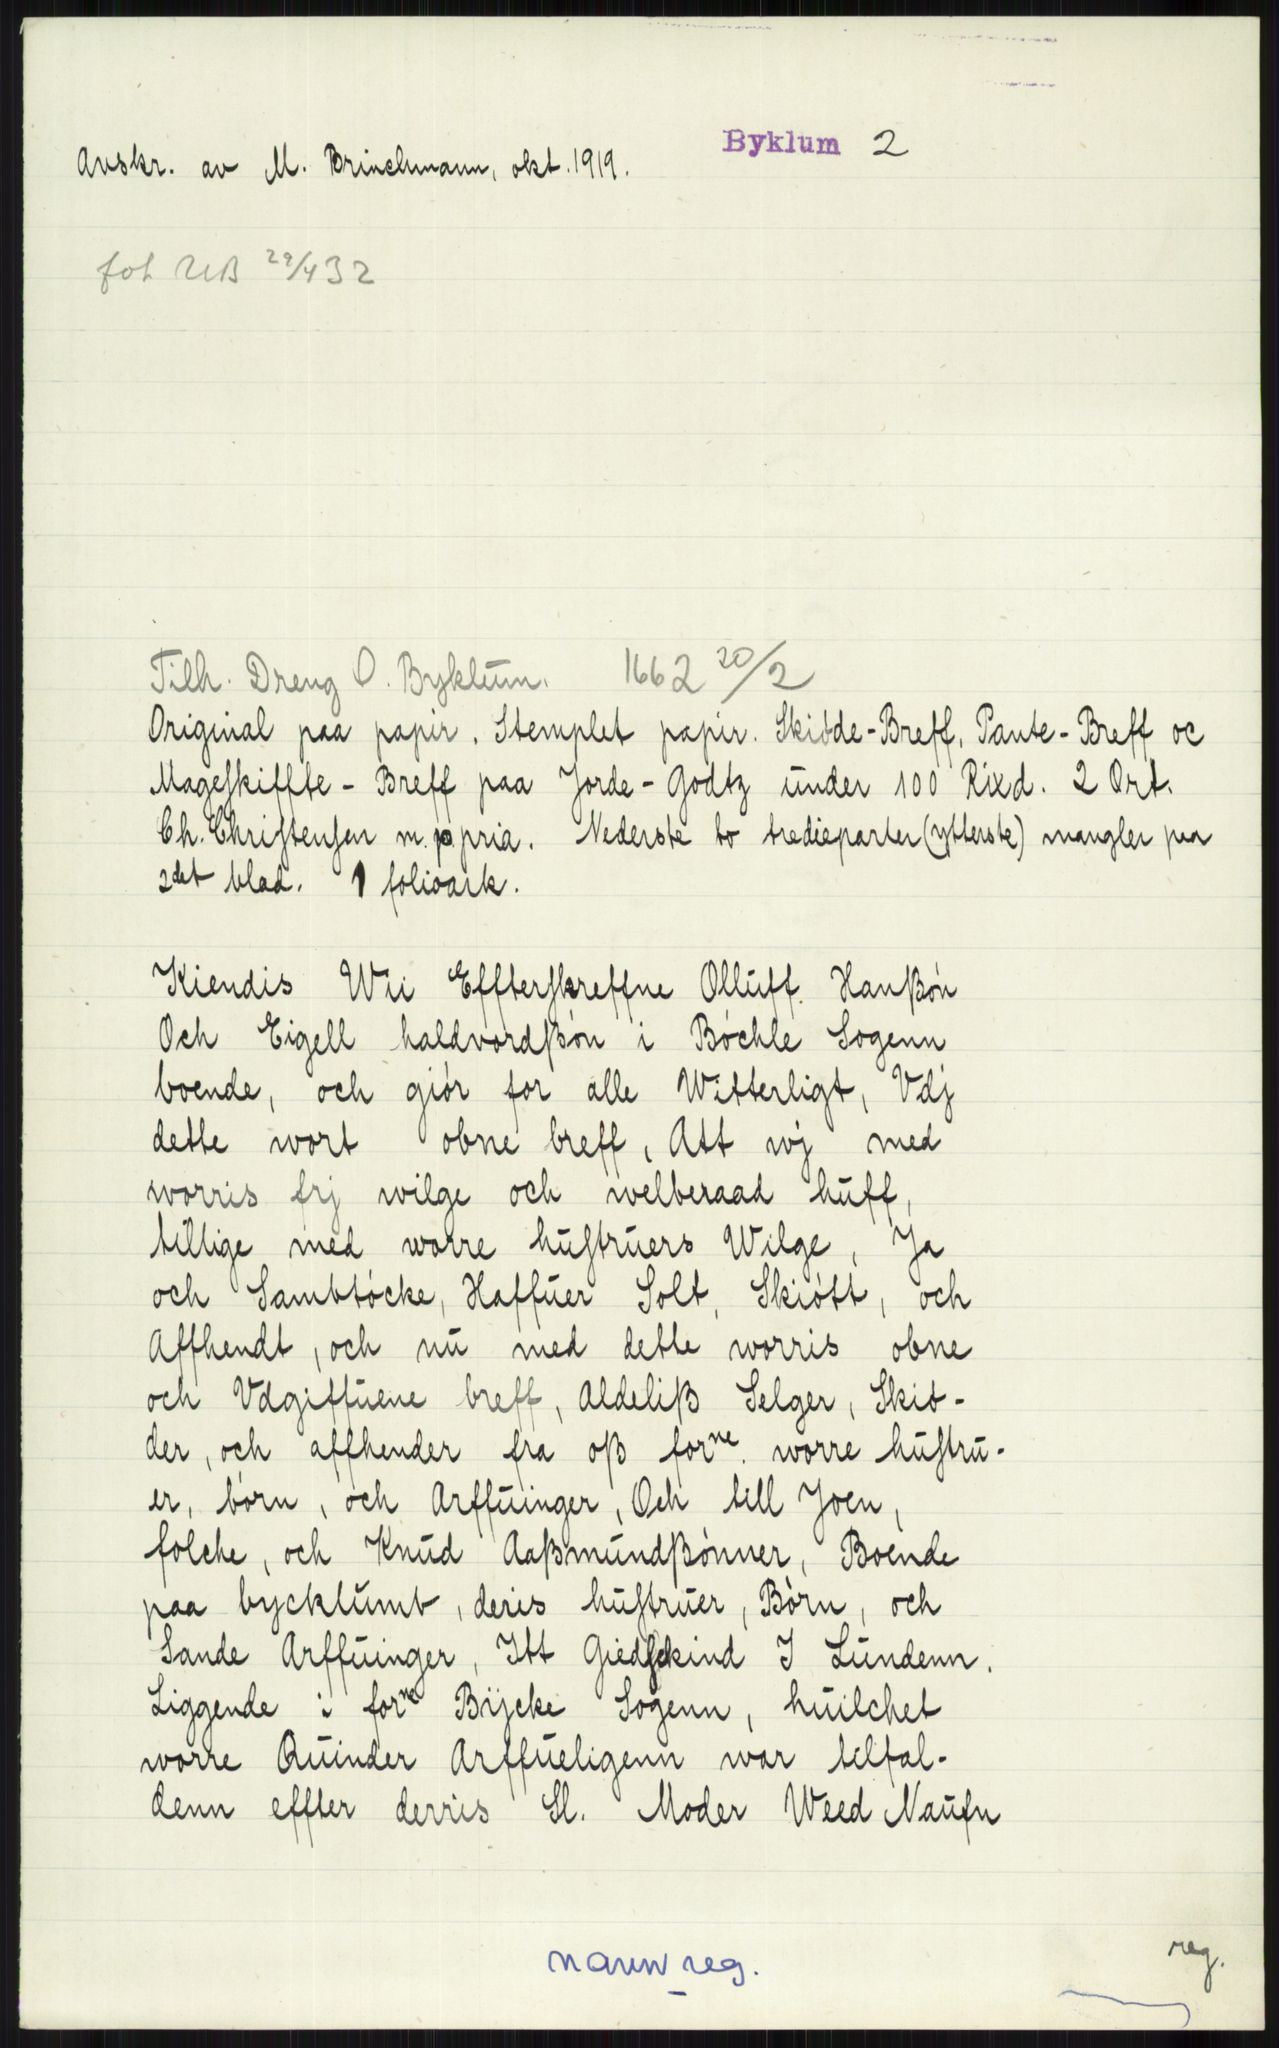 Byklum 2
Avskr. av M. Brinchmann, okt. 1919.
fot UB 29/4 32
Tilh. Dreng O. Byklum. 1662 20/2
Original paa papir. Stemplet papir. Skiøde-Breff, Pante-Breff oc
Mageskiffte-Breff paa Jorde-Godtz under 100 Rixd. 2 Ort.
Ch. Christensen m. p pria. Nederste to tredieparter (ytterste) mangler paa
2det blad. 1 folioark.
Kiendis Wii Effterskreffne Olluff Hanßón
Och Eigell haldvordßón i Bóchle Sogenn
boende, och giór for alle Witterligt, Vdj
dette wort obne breff, Att wj med
worris frj wilge och welberaad huff,
tillige med worre hustruers Wilge, Ja
och Sambtócke, Haffuer Solt, Skiótt, och
Affhendt, och nu med dette worris obne
och Vdgiffuene breff, Aldeliß Selger, Skió-
der, och affhender fra oß forne. worre hustru-
er, bórn, och Arffuinger, Och till Joen,
folche, och Knud Aaßmundßónner, Boende
paa bycklumb, deris hustruer, Bórn, och
Sande Arffuinger, Itt Giedskind I Lundenn.
Liggende i forne Bijcke Sogenn, huilchet
worre Quinder Arffueligenn war tilfal-
denn effter derris Sl. Moder Weed Naufn
navn reg.
reg.